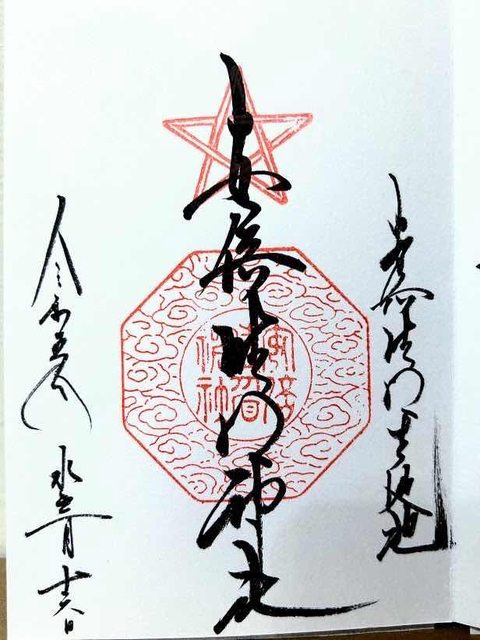 安倍晴明生誕地
安倍晴明神社
安倍晴明神社
令和五年 水無月 十六日